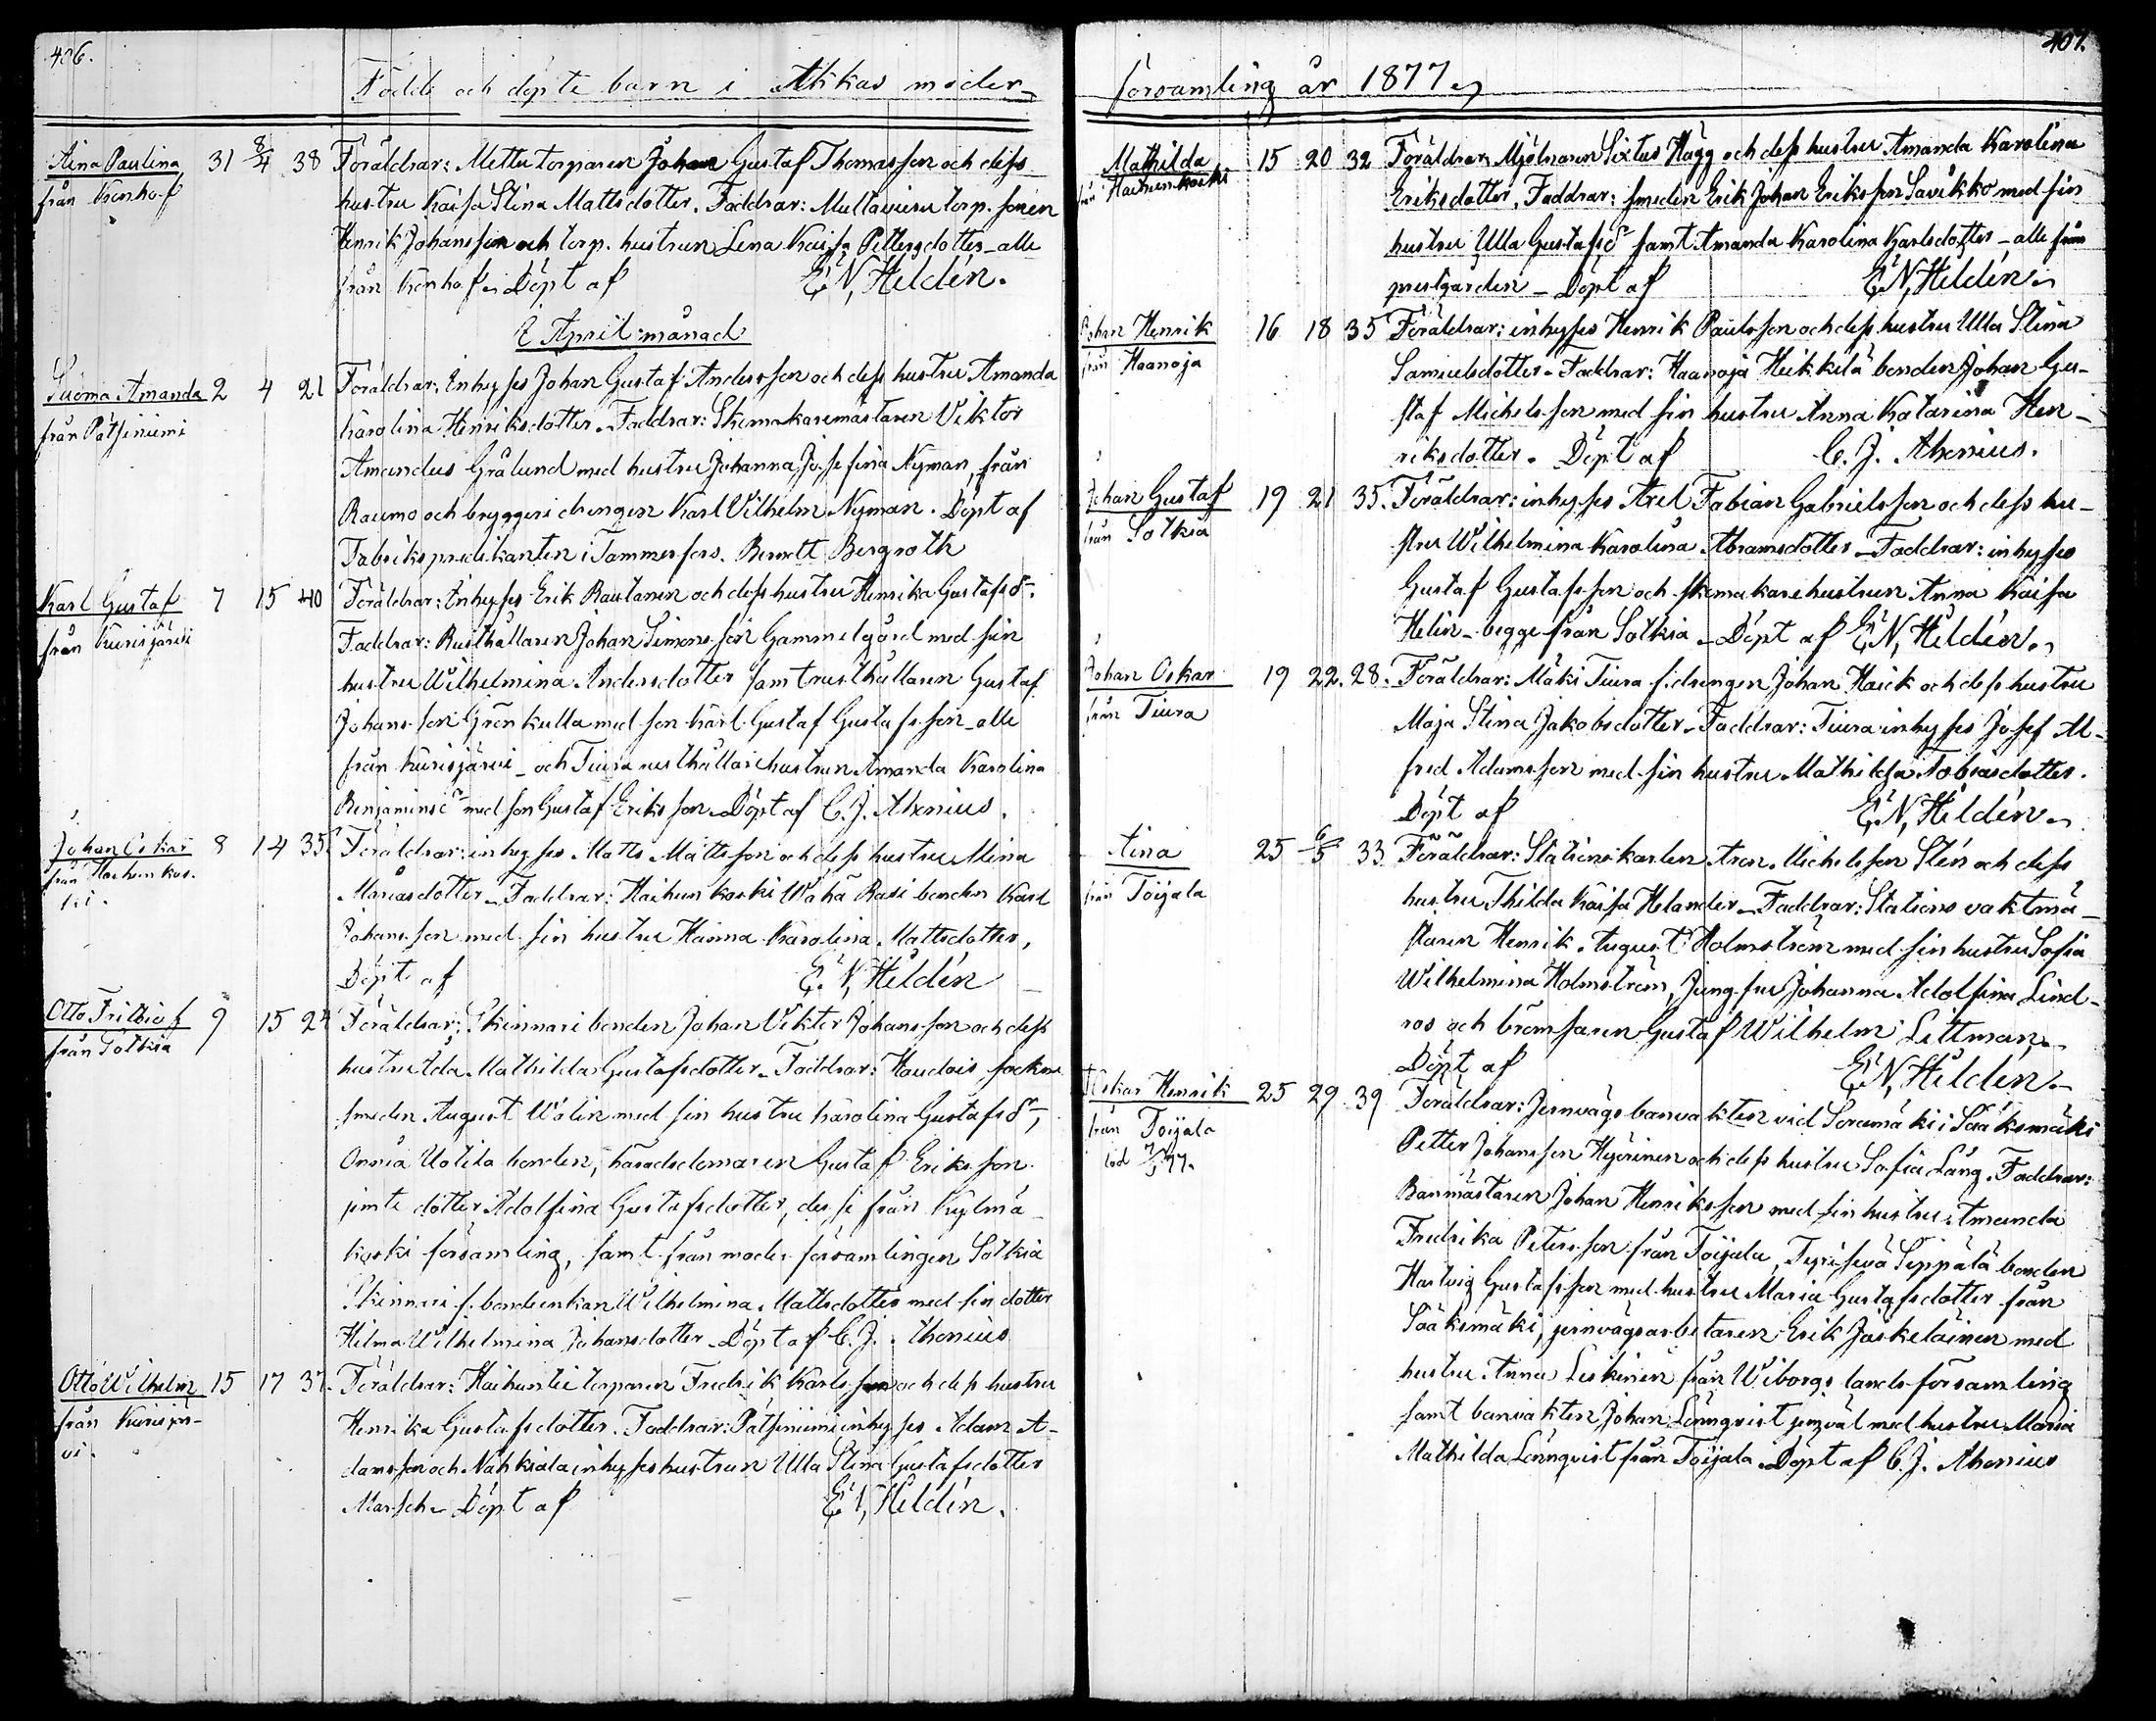 406.
Födde och döpte barn i Akkas moder-
Aina Paulina 31 8/4 38 Föräldrar: Mettu torparen Johan Gustaf Thomasson och dess
från Konho f hustru Kaisa Stina Mattsdotter. Faddrar: torp. sonen
Henrik Johansson och torp. hustrun Lena Kaisa Pettersdotter - alle
från Konho f. Döpt af E. N. Heldén.
April månad
Suoma Amanda 2 4 21 Föräldrar: Inhyses Johan Gustaf Andersson och dess hustru Amanda
från Pätsiniemi Karolina Henriksdotter. Faddrar: Skomakaremästaren Viktor
Amandus Grålund med hustru Johanna Josefina Nyman, från
Raumo och bryggeri drengen Karl Vilhelm Nyman. Döpt af
Fabrikspredikanten i Tammerfors. Bergroth
Karl Gustaf 7 15 40 Föräldrar: Inhyses Erik Rautanen och dess hustru Henrika Gustafsdr.
från Kurisjärvi Faddrar: Rusthållaren Johan Simonsson Gammelgård med sin
hustru Wilhelmina Andersdotter samt rusthållaren Gustaf
Johansson Grönkulla med son Karl Gustaf Gustafsson - alle
från Kurisjärvi - och Tiura rusthållarehustrun Amanda Karolina
Benjaminsdr med son Gustaf Eriksson. Döpt af C. J. Ahonius.
Johan Oskar 8 14 35 Föräldrar: inhyses Matts Mattsson och dess hustru Mina
från Haihunkos- Mariasdotter. Faddrar: Haihunkoski Wähä Rasi bonden Karl
ki. Johansson med sin hustru Hanna Karolina Mattsdotter,
Döpt af E. N. Heldén
Otto Frithiof 9 15 24 Föräldrar: Skinnari bonden Johan Viktor Johansson och dess
från Sotkia hustru Ida Mathilda Gustafsdotter. Faddrar: sockne
smeden August Wolin med sin hustru Karolina Gustafsdr,
Annia Uotila bonden, häradsdomaren Gustaf Eriksson
jemte dotter Adolfina Gustafsdotter, desse från Kylmä-
koski församling, samt från moder församlingen Sotkia
Skinnari f. bondeenkan Wilhelmina Mattsdotter med sin dotter
Hilma Wilhelmina Johansdotter. Döpt af C. J. Ahonius
Otto Wilhelm 15 17 37. Föräldrar: Haihuntie torparen Fredrik Karlsson och dess hustru
från Kurisjär- Henrika Gustafsdotter. Faddrar: Pätsiniemi inhyses Adam A-
vi. damsson och Nahkiala inhyses hustrun Ulla Stina Gustafsdotter
Marsch. Döpt af E. N. Heldén.
407.
församling år 1877.
Mathilda 15 20 32 Föräldrar: Mjölnaren Sixtus Hägg och dess hustru Amanda Karolina
från Haihunkoski Eriksdotter. Faddrar: smeden Erik Johan Eriksson Savikko med sin
hustru Ulla Gustafsdr samt Amanda Karolina Karlsdotter - alle från
prestgården - Döpt af E. N. Heldén.
Johan Henrik 16 18 35 Föräldrar: inhyses Henrik Paulsson och dess hustru Ulla Stina
från Haanoja Samuelsdotter. Faddrar: Haanoja Heikkilä bonden Johan Gu-
staf Michelsson med sin hustru Anna Katarina Hen-
riksdotter. Döpt af C. J. Ahonius.
Johan Gustaf 19 21 35. Föräldrar: inhyses Axel Fabian Gabrielsson och dess hu-
från Sotkia stru Wilhelmina Karolina Abramsdotter - Faddrar: inhyses
Gustaf Gustafsson och skomakarehustrun Anna Kaisa
Helin - begge från Sotkia - Döpt af E. N. Heldén.
Johan Oskar 19 22. 28. Föräldrar: Mäki Tiura f. drengen Johan Haick och dess hustru
från Tiura Maja Stina Jakobsdotter. Faddrar: Tiura inhyses Josef Al-
fred Adamsson med sin hustru Mathilda Tobiasdotter.
Döpt af E. N. Heldén.
Aina 25 6/5 33 Föräldrar: Stationskarlen Aron Michelsson Stén och dess
från Toijala hustru Thilda Kaisa Helander. Faddrar: Stations vaktmä-
staren Henrik August Holmström med sin hustru Sofia
Wilhelmina Holmström, Jungfru Johanna Adolfina Lind-
ros och bromsaren Gustaf Wilhelm Littman.
Döpt af E. N. Heldén.
Oskar Henrik 25 29 39 Föräldrar: Jernvägs banvakten vid Soramäki i Sääksmäki
från Toijala Petter Johansson Hyörinen och dess hustru Sofia Lång. Faddrar:
Banmästaren Johan Henriksson med sin hustru Amanda
Fredrika Petersson från Toijala, Seppälä bonden
Hartvig Gustafsson med hustru Maria Gustafsdotter från
Sääksmäki, jernvägsarbetaren Erik Jäskeläinen med
hustru Anna Leskinen från Wiborgs lands-församling
samt banvakten Johan Lönnqvist jemväl med hustru Maria
Mathilda Lönnqvist från Toijala. Döpt af C. J. Ahonius